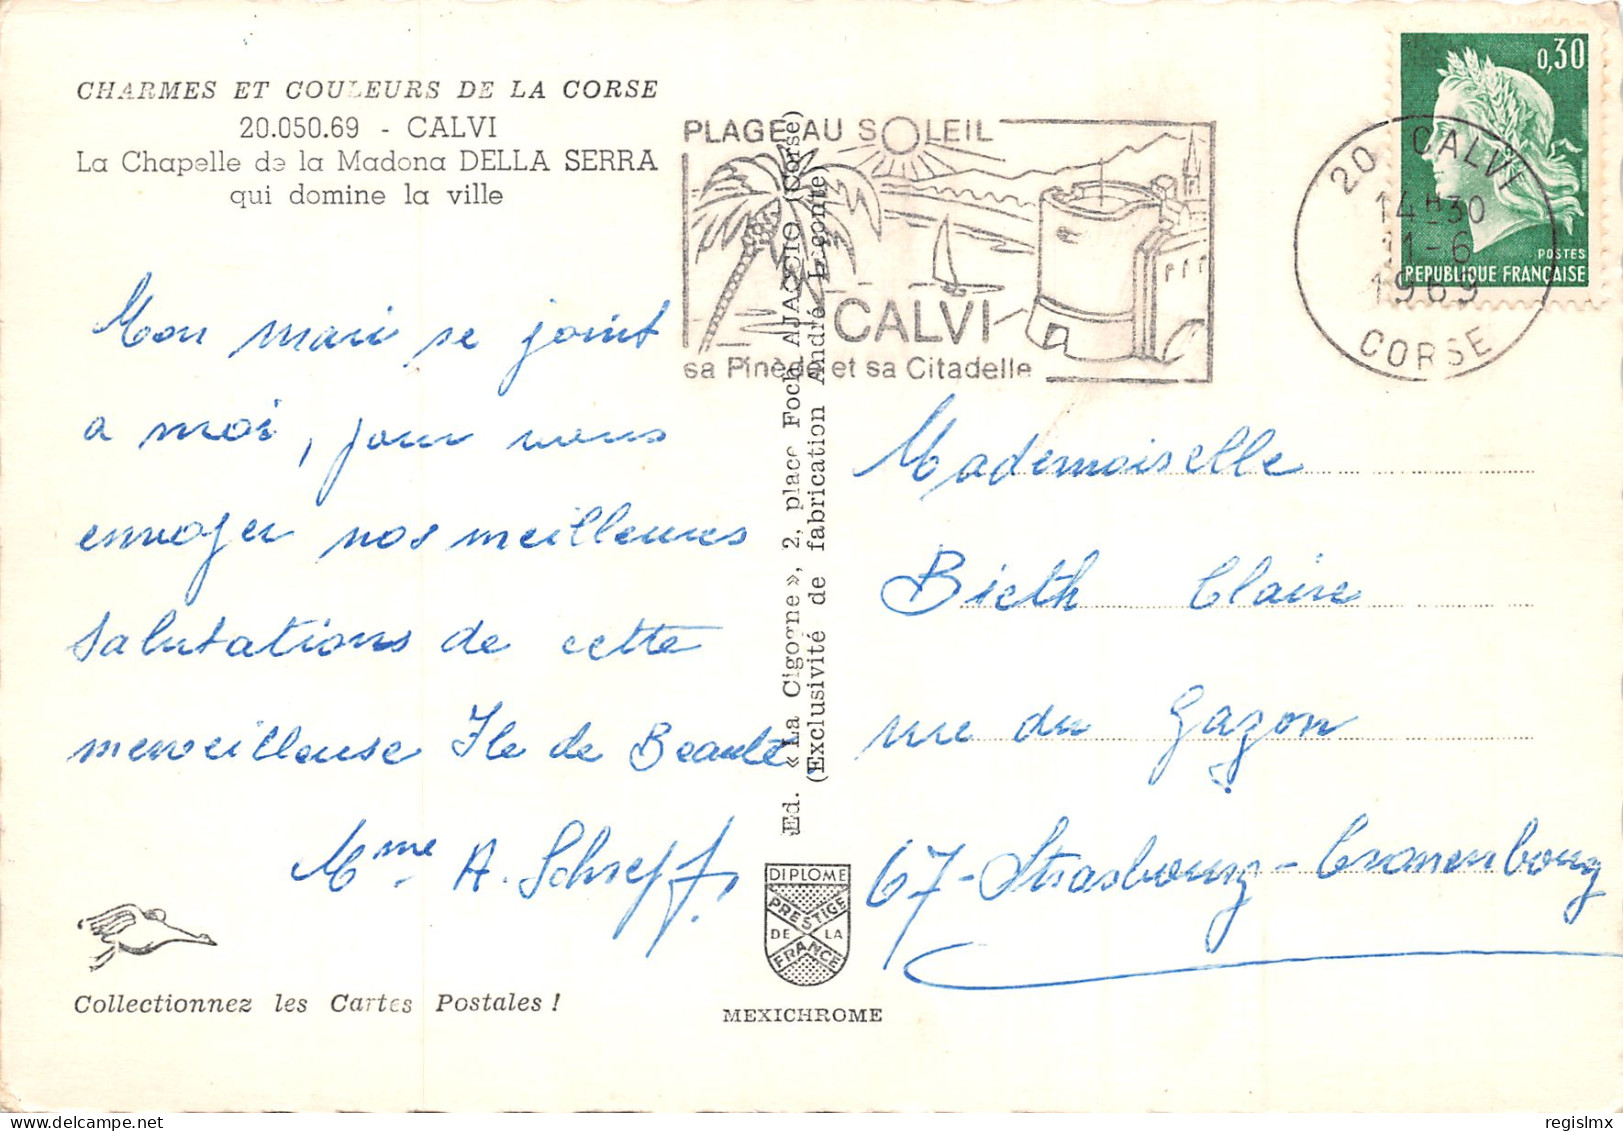 CHARMES ET COULEURS DE LA CORSE
20.050.69 - CALVI
La Chapelle de la Madona DELLA SERRA
qui domine la ville
Mon mari se joint
a moi, pour vous
envoyer nos meilleures
salutations de cette
merveilleuse Ile de Beauté,
Mme A. Schreff.
Collectionnez les Cartes Postales !
Ed. «La Cigogne», 2, place Foch AJACCIO (Corse)
(Exclusivité de fabrication André Leconte)
DIPLOME
PRESTIGE
DE LA
FRANCE
MEXICHROME
PLAGE AU SOLEIL
CALVI
sa Pinède et sa Citadelle
20 CALVI
14H30
11-6
1969
CORSE
0,30
POSTES
REPUBLIQUE FRANÇAISE
Mademoiselle
Bieth Claire
rue du Gazon
67-Strasbourg-Cronenbourg
regislmx